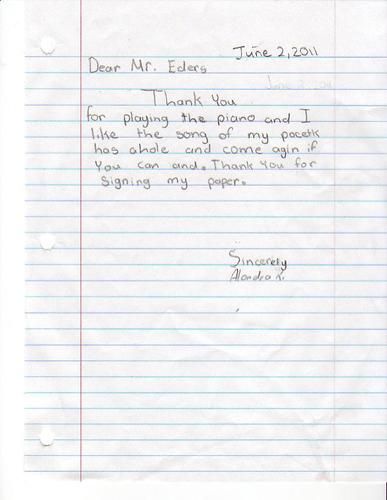 June 2, 2011
Dear Mr. Eders
Thank You
for playing the piano and I
like the song of my pocetk
has ahole and come agin if
You can and. Thank You for
signing my paper.
Sincerely